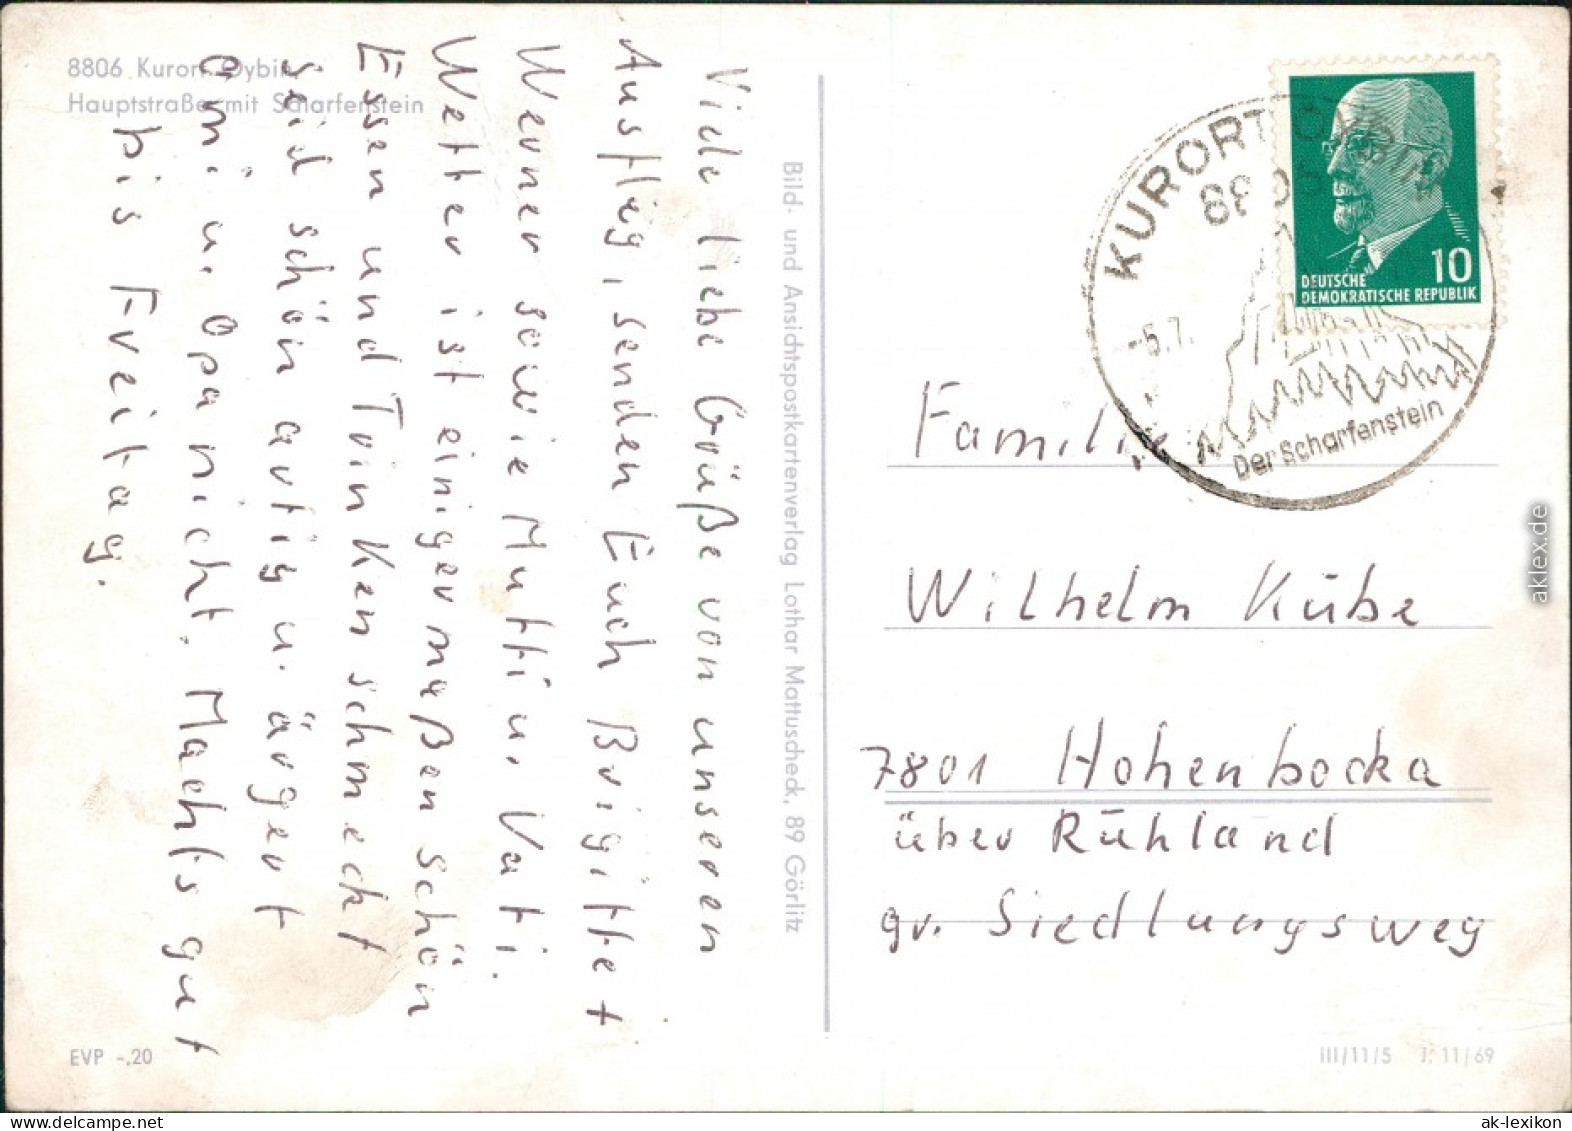 8806 Kurort Oybin
Hauptstraße mit Scharfenstein
Viele liebe Grüße von unseren
Ausflug, senden Euch Brigitte t
Werner sowie Mutti u. Vati.
Wetter ist einigermaßen schön
Essen und Trinken schmeckt
seid schön artig u. ärgert
Omi u. Opa nicht. Machts gut
bis Freitag.
EVP -.20
Bild- und Ansichtspostkartenverlag Lothar Mattuscheck, 89 Görlitz
KURORT OYBIN
8806
-5.7.
Der Scharfenstein
10
DEUTSCHE
DEMOKRATISCHE REPUBLIK
Familie
Wilhelm Kübe
7801 Hohenbocka
über Ruhland
gr. Siedlungsweg
III/11/5 J. 11/69
aklex.de
www.delcampe.net
ak-lexikon